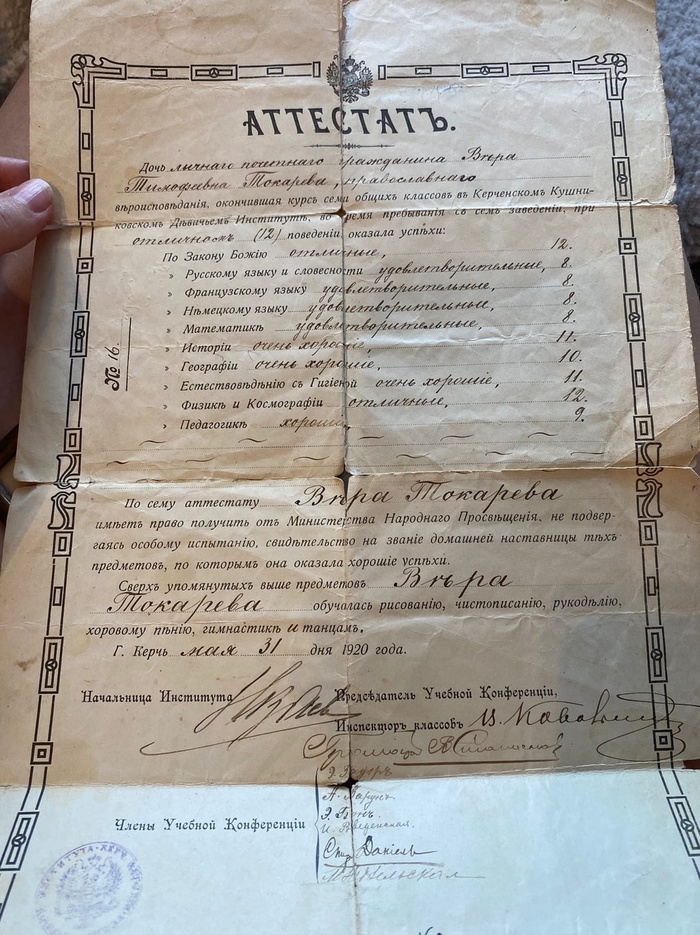 АТТЕСТАТЪ.
Дочь личнаго почетнаго гражданина Вѣра
Тимофеевна Токарева, православнаго
вѣроисповѣданія, окончившая курсъ семи общихъ классовъ въ Керченскомъ Кушни-
ковскомъ Дѣвичьемъ Институтѣ, во время пребыванія въ семъ заведеніи, при
отличномъ (12) поведеніи оказала успѣхи:
По Закону Божію отличные, 12.
» Русскому языку и словесности удовлетворительные, 8.
» Французскому языку удовлетворительные, 8.
» Нѣмецкому языку удовлетворительные, 8.
» Математикѣ удовлетворительные, 8.
» Исторіи очень хорошіе, 11.
» Географіи очень хорошіе, 10.
» Естествовѣдѣнію съ Гигіеной очень хорошіе, 11.
» Физикѣ и Космографіи отличные, 12.
» Педагогикѣ хорошіе, 9.
№ 16.
По сему аттестату Вѣра Токарева
имѣетъ право получить отъ Министерства Народнаго Просвѣщенія, не подвер-
гаясь особому испытанію, свидѣтельство на званіе домашней наставницы тѣхъ
предметовъ, по которымъ она оказала хорошіе успѣхи.
Сверхъ упомянутыхъ выше предметовъ Вѣра
Токарева обучалась рисованію, чистописанію, рукодѣлію,
хоровому пѣнію, гимнастикѣ и танцамъ.
Г. Керчь мая 31 дня 1920 года.
Начальница Института
Предсѣдатель Учебной Конференціи,
Инспекторъ классовъ
Члены Учебной Конференціи
И. Введенская
Даніель